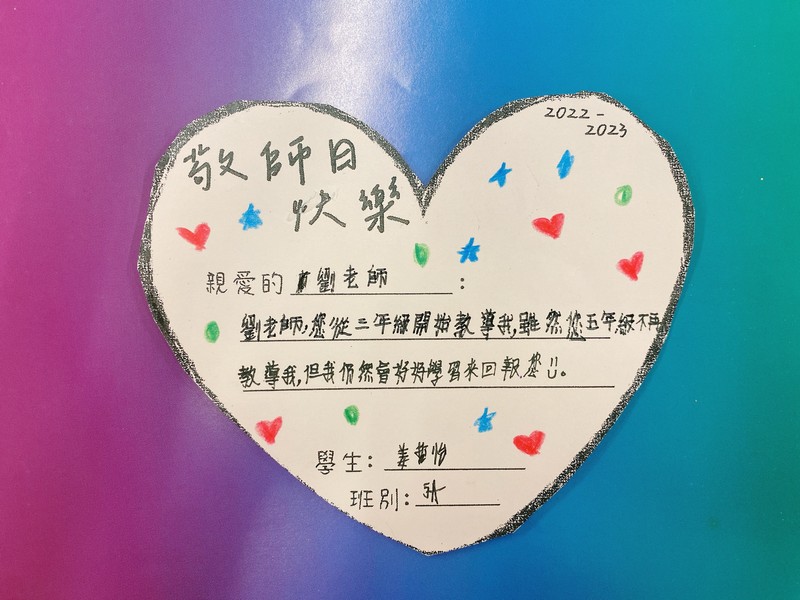 敬師日
快樂
2022-
2023
親愛的 劉老師 :
劉老師,您從三年級開始教導我,雖然您五年級不再
教導我,但我仍然會好好學習來回報您。
學生: 姜哲怡
班別: 5A